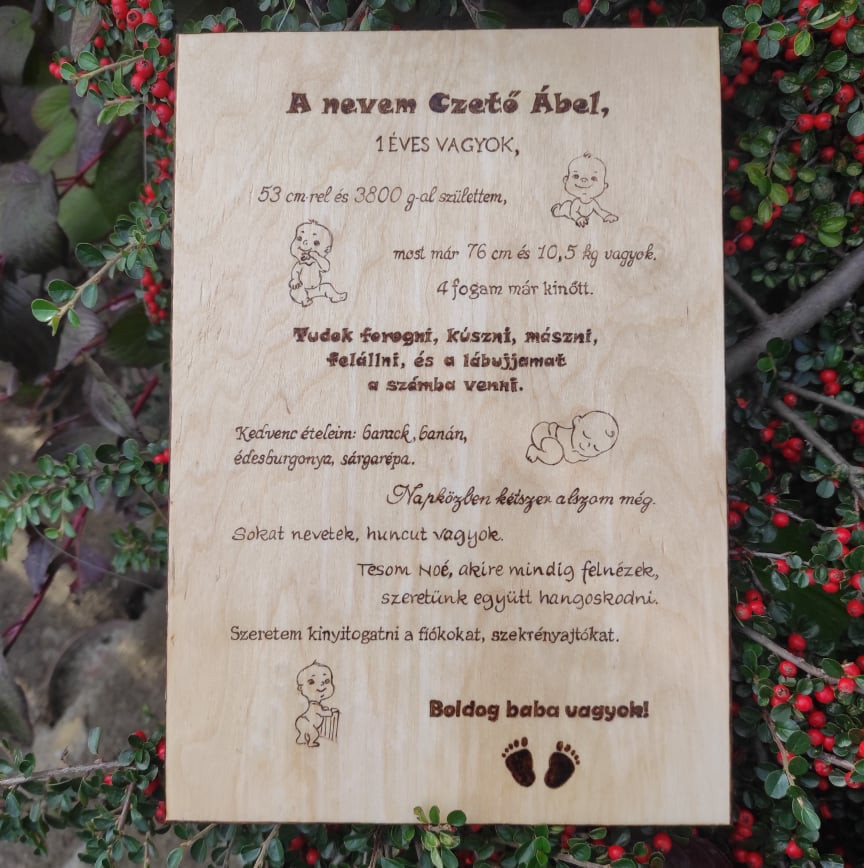 A nevem Czető Ábel,
1 ÉVES VAGYOK,
53 cm-rel és 3800 g-al születtem,
most már 76 cm és 10,5 kg vagyok.
4 fogam már kinőtt.
Tudok forogni, kúszni, mászni,
felállni, és a lábujjamat
a számba venni.
Kedvenc ételeim: barack, banán,
édesburgonya, sárgarépa.
Napközben kétszer alszom még.
Sokat nevetek, huncut vagyok.
Tesom Noé, akire mindig felnézek,
szeretünk együtt hangoskodni.
Szeretem kinyitogatni a fiókokat, szekrényajtókat.
Boldog baba vagyok!